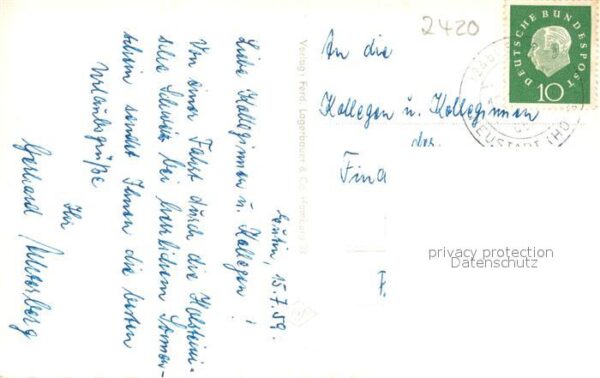 2420
DEUTSCHE BUNDESPOST
10
NEUSTADT (HO
An die
Kollegen u. Kolleginnen
der
Fina
F
privacy protection
Datenschutz
Verlag: Ferd. Lagerbauer & Co. Hamburg
Eutin, 15.7.59.
Liebe Kolleginnen
u. Kollegen!
Von einer Fahrt durch die Holsteini-
sche Schweiz bei herrlichem Sonnen-
schein sendet Ihnen die besten
Urlaubsgrüße
Ihr
Gerhard